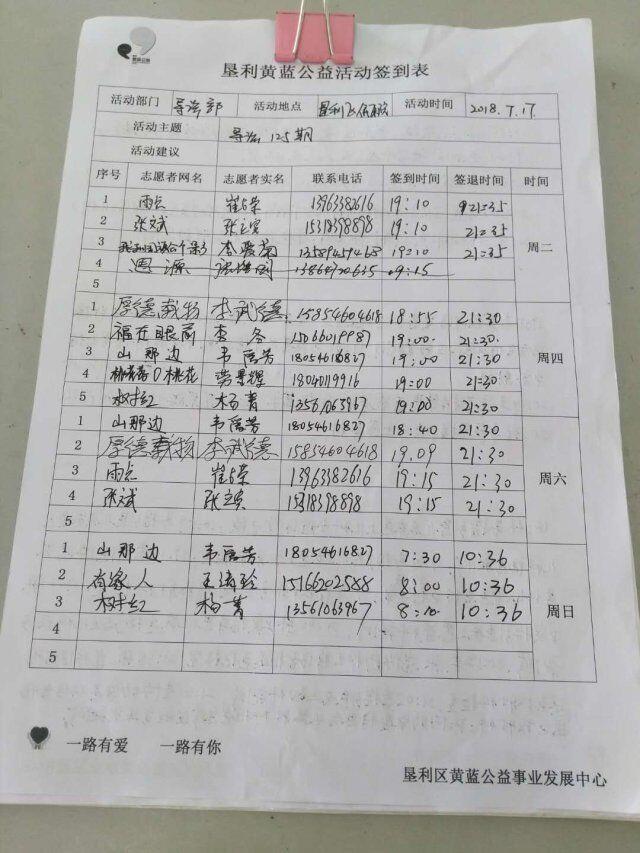 垦利黄蓝公益活动签到表
活动部门 导游部 活动地点 垦利 活动时间 2018.7.17
活动主题 导游125期
活动建议
序号 志愿者网名 志愿者实名 联系电话 签到时间 签退时间 时间
1 雨点 13963382616 19:10 21:35
2 张斌 15318398898 19:10 21:35
周二
3 13589459468 19:10 21:35
4 思源 13864720635 19:15
5
1 厚德载物 李武德 15854604618 18:55 21:30
2 福在眼前 李冬 15066019987 19:00 21:30
3 山那边 韦 芳 18054616827 19:00 21:30
周四
4 桃花 19:00 21:30
5 杨青 13561063967 19:00 21:30
1 山那边 韦 芳 18054616827 18:40 21:30
2 厚德载物 李武德 15854604618 19.09 21:30
3 雨点 13963382616 19:15 21:30
周六
4 张斌 15318398898 19:15 21:30
5
1 山那边 韦 芳 18054616827 7:30 10:36
2 有缘人 王 玲 15166202588 8:00 10:36
3 杨青 13561063967 8:10 10:36
周日
4
5
一路有爱 一路有你
垦利区黄蓝公益事业发展中心